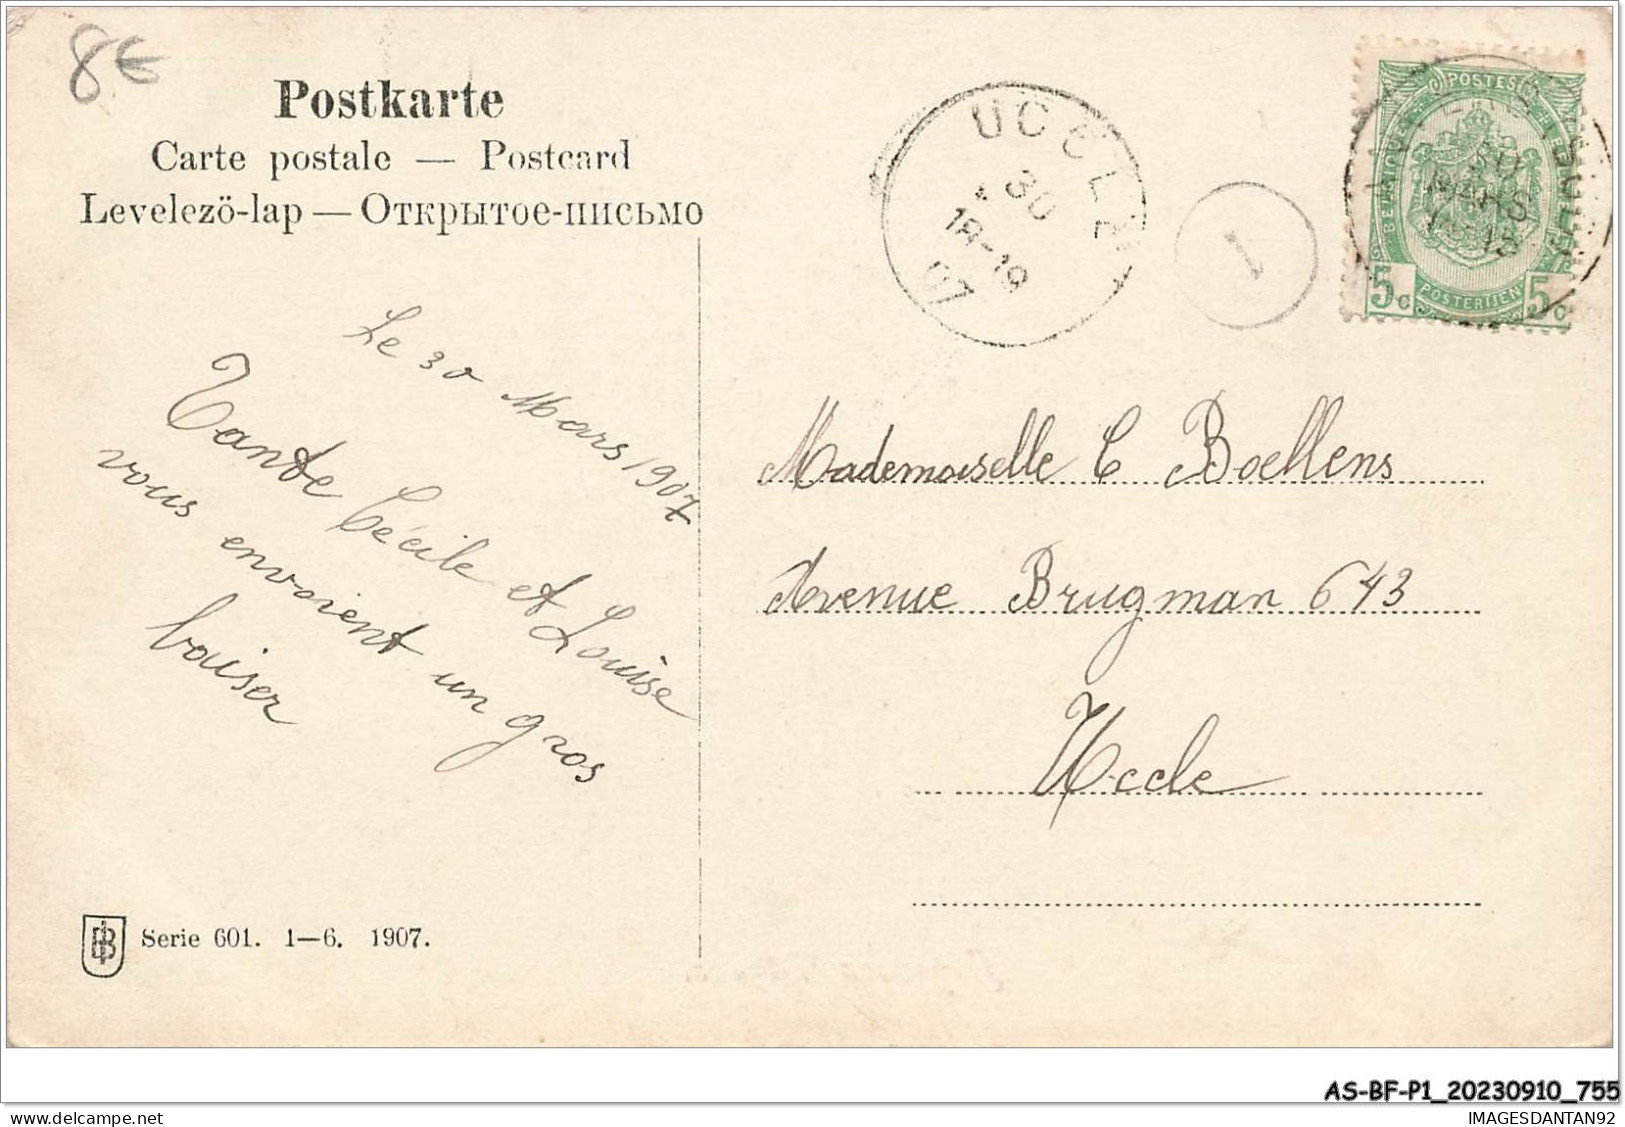 8€
Postkarte
Carte postale — Postcard
Levelezö-lap — Открытое-письмо
UCCLE
30
18-19
07
1
POSTES
BELGIQUE
30
MARS
5c
POSTERIJEN
5c
Le 30 Mars 1907
Tante Cécile et Louise
vous envoient un gros
baiser
Mademoiselle C Boellens
Avenue Brugman 643
Uccle
Serie 601. 1—6. 1907.
AS-BF-P1_20230910_755
IMAGESDANTAN92